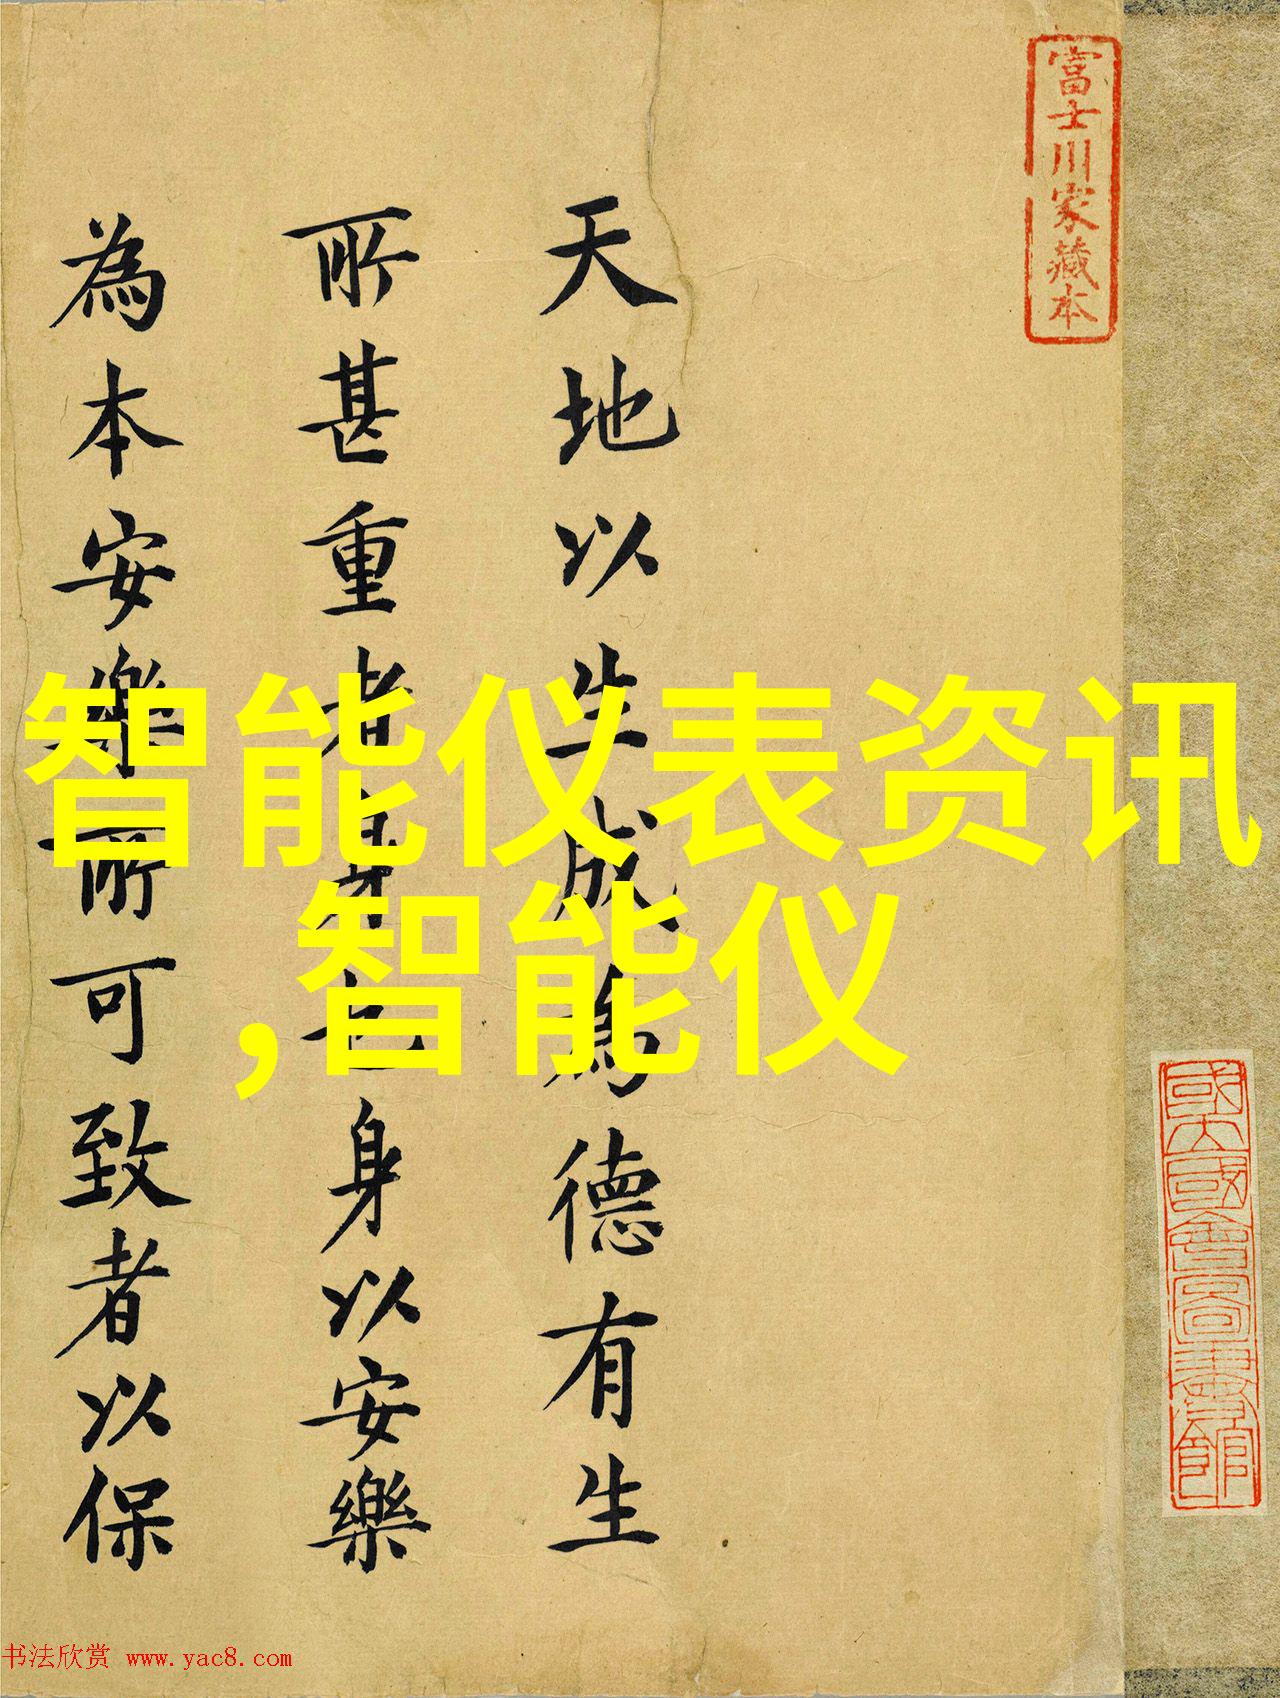 富士川家藏本
天地以生成為德有生
所甚重者身也身以安樂
為本安樂所可致者以保
智能仪表资讯
,智能仪
國立國會圖書館
书法欣赏 www.yac8.com